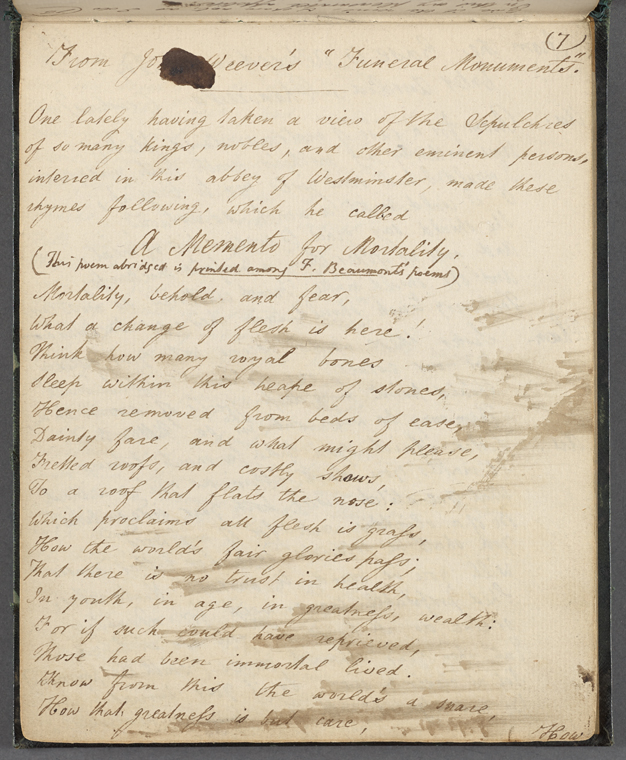 (7)
From Jo Weever's "Funeral Monuments".
One lately having taken a view of the Sepulchres
of so many kings, nobles, and other eminent persons,
interred in this abbey of Westminster, made these
rhymes following, which he called
A Memento for Mortality.
(This poem abridged is printed among F. Beaumont's poems)
Mortality, behold and fear,
What a change of flesh is here!
Think how many royal bones
Sleep within this heape of stones,
Hence removed from beds of ease,
Dainty fare, and what might please,
Fretted roofs, and costly shows,
To a roof that flats the nose:
Which proclaims all flesh is grass,
How the world's fair glories pass;
That there is no trust in health,
In youth, in age, in greatness, wealth:
For if such could have reprieved,
Those had been immortal lived.
Know from this the world's a snare,
How that greatness is but care,
How